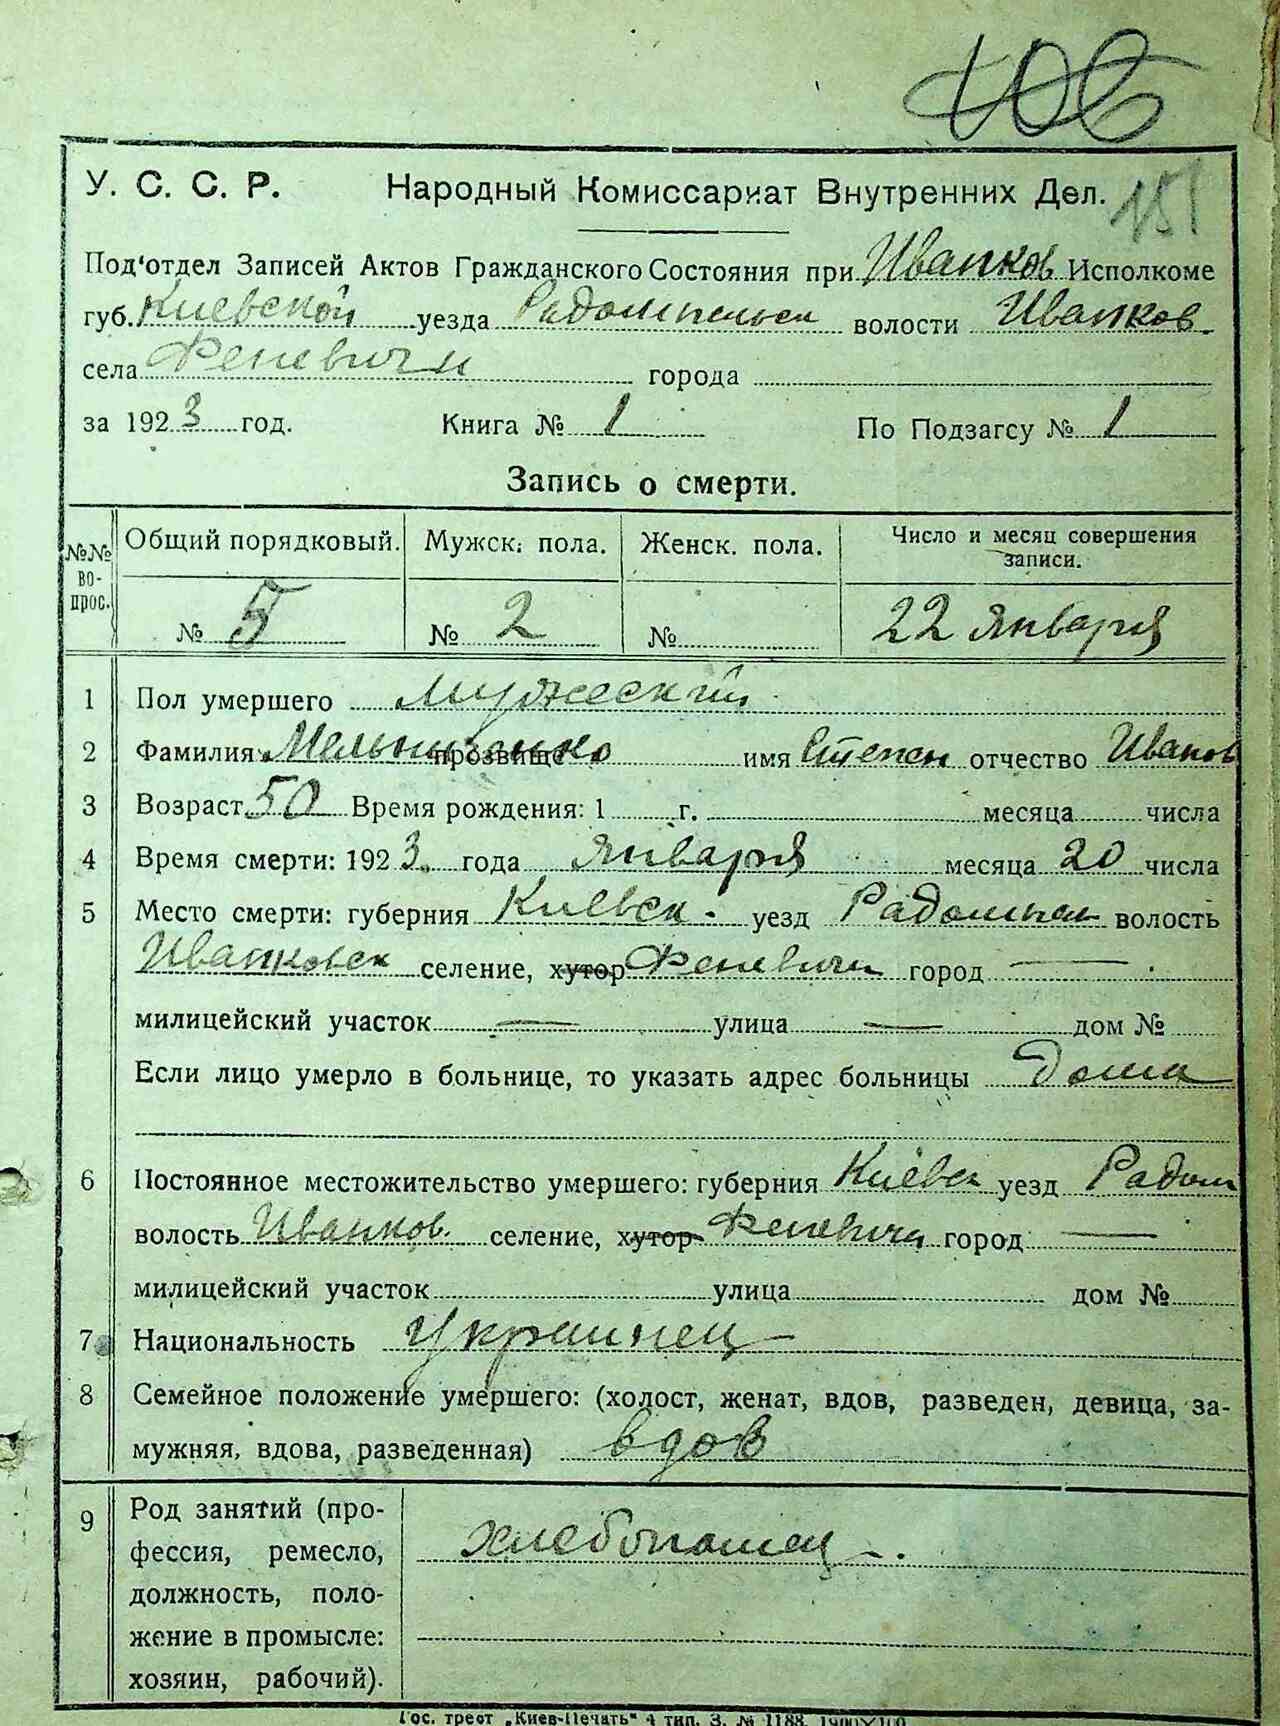 У. С. С. Р. Народный Комиссариат Внутренних Дел. 151
Под'отдел Записей Актов Гражданского Состояния при Иванков Исполкоме
губ. Киевской уезда Радомысльск волости Иванков.
села Феневичи города
за 1923 год. Книга № 1 По Подзагсу № 1
Запись о смерти.
№№ вопрос. Общий порядковый. Мужск. пола. Женск. пола. Число и месяц совершения записи.
№ 5 № 2 № 22 января
1 Пол умершего Мужеский
2 Фамилия, прозвище Мельниченко имя Степан отчество Иванов
3 Возраст 50 Время рождения: 1 г. месяца числа
4 Время смерти: 1923 года января месяца 20 числа
5 Место смерти: губерния Киевск. уезд Радомысл волость
Иванковск селение, хутор Феневичи город —
милицейский участок — улица — дом №
Если лицо умерло в больнице, то указать адрес больницы Дома
6 Постоянное местожительство умершего: губерния Киевск уезд Радом
волость Иванков. селение, хутор Феневичи город —
милицейский участок улица дом №
7 Национальность Украинец
8 Семейное положение умершего: (холост, женат, вдов, разведен, девица, за-
мужняя, вдова, разведенная) вдов
9 Род занятий (про-
фессия, ремесло,
должность, поло-
жение в промысле:
хозяин, рабочий).
хлебопашец
Гос. трест „Киев-Печать" 4 тип. З. № 1188.